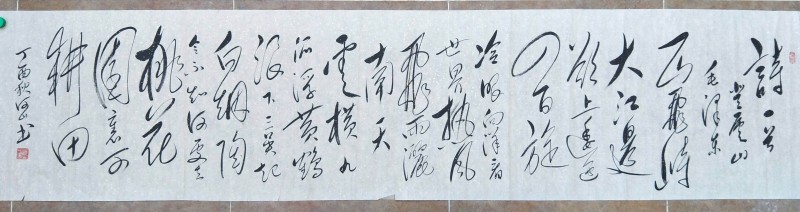 詩一首
登廬山
毛澤东
一山飛峙
大江邊
欲上逶迤
四百旋
冷眼向洋看
世界热风
飛雨灑
南天
雲橫九
派浮黄鶴
浪下三吴起
白烟陶
令不知何处去
桃花
園裏可
耕田
丁酉秋书